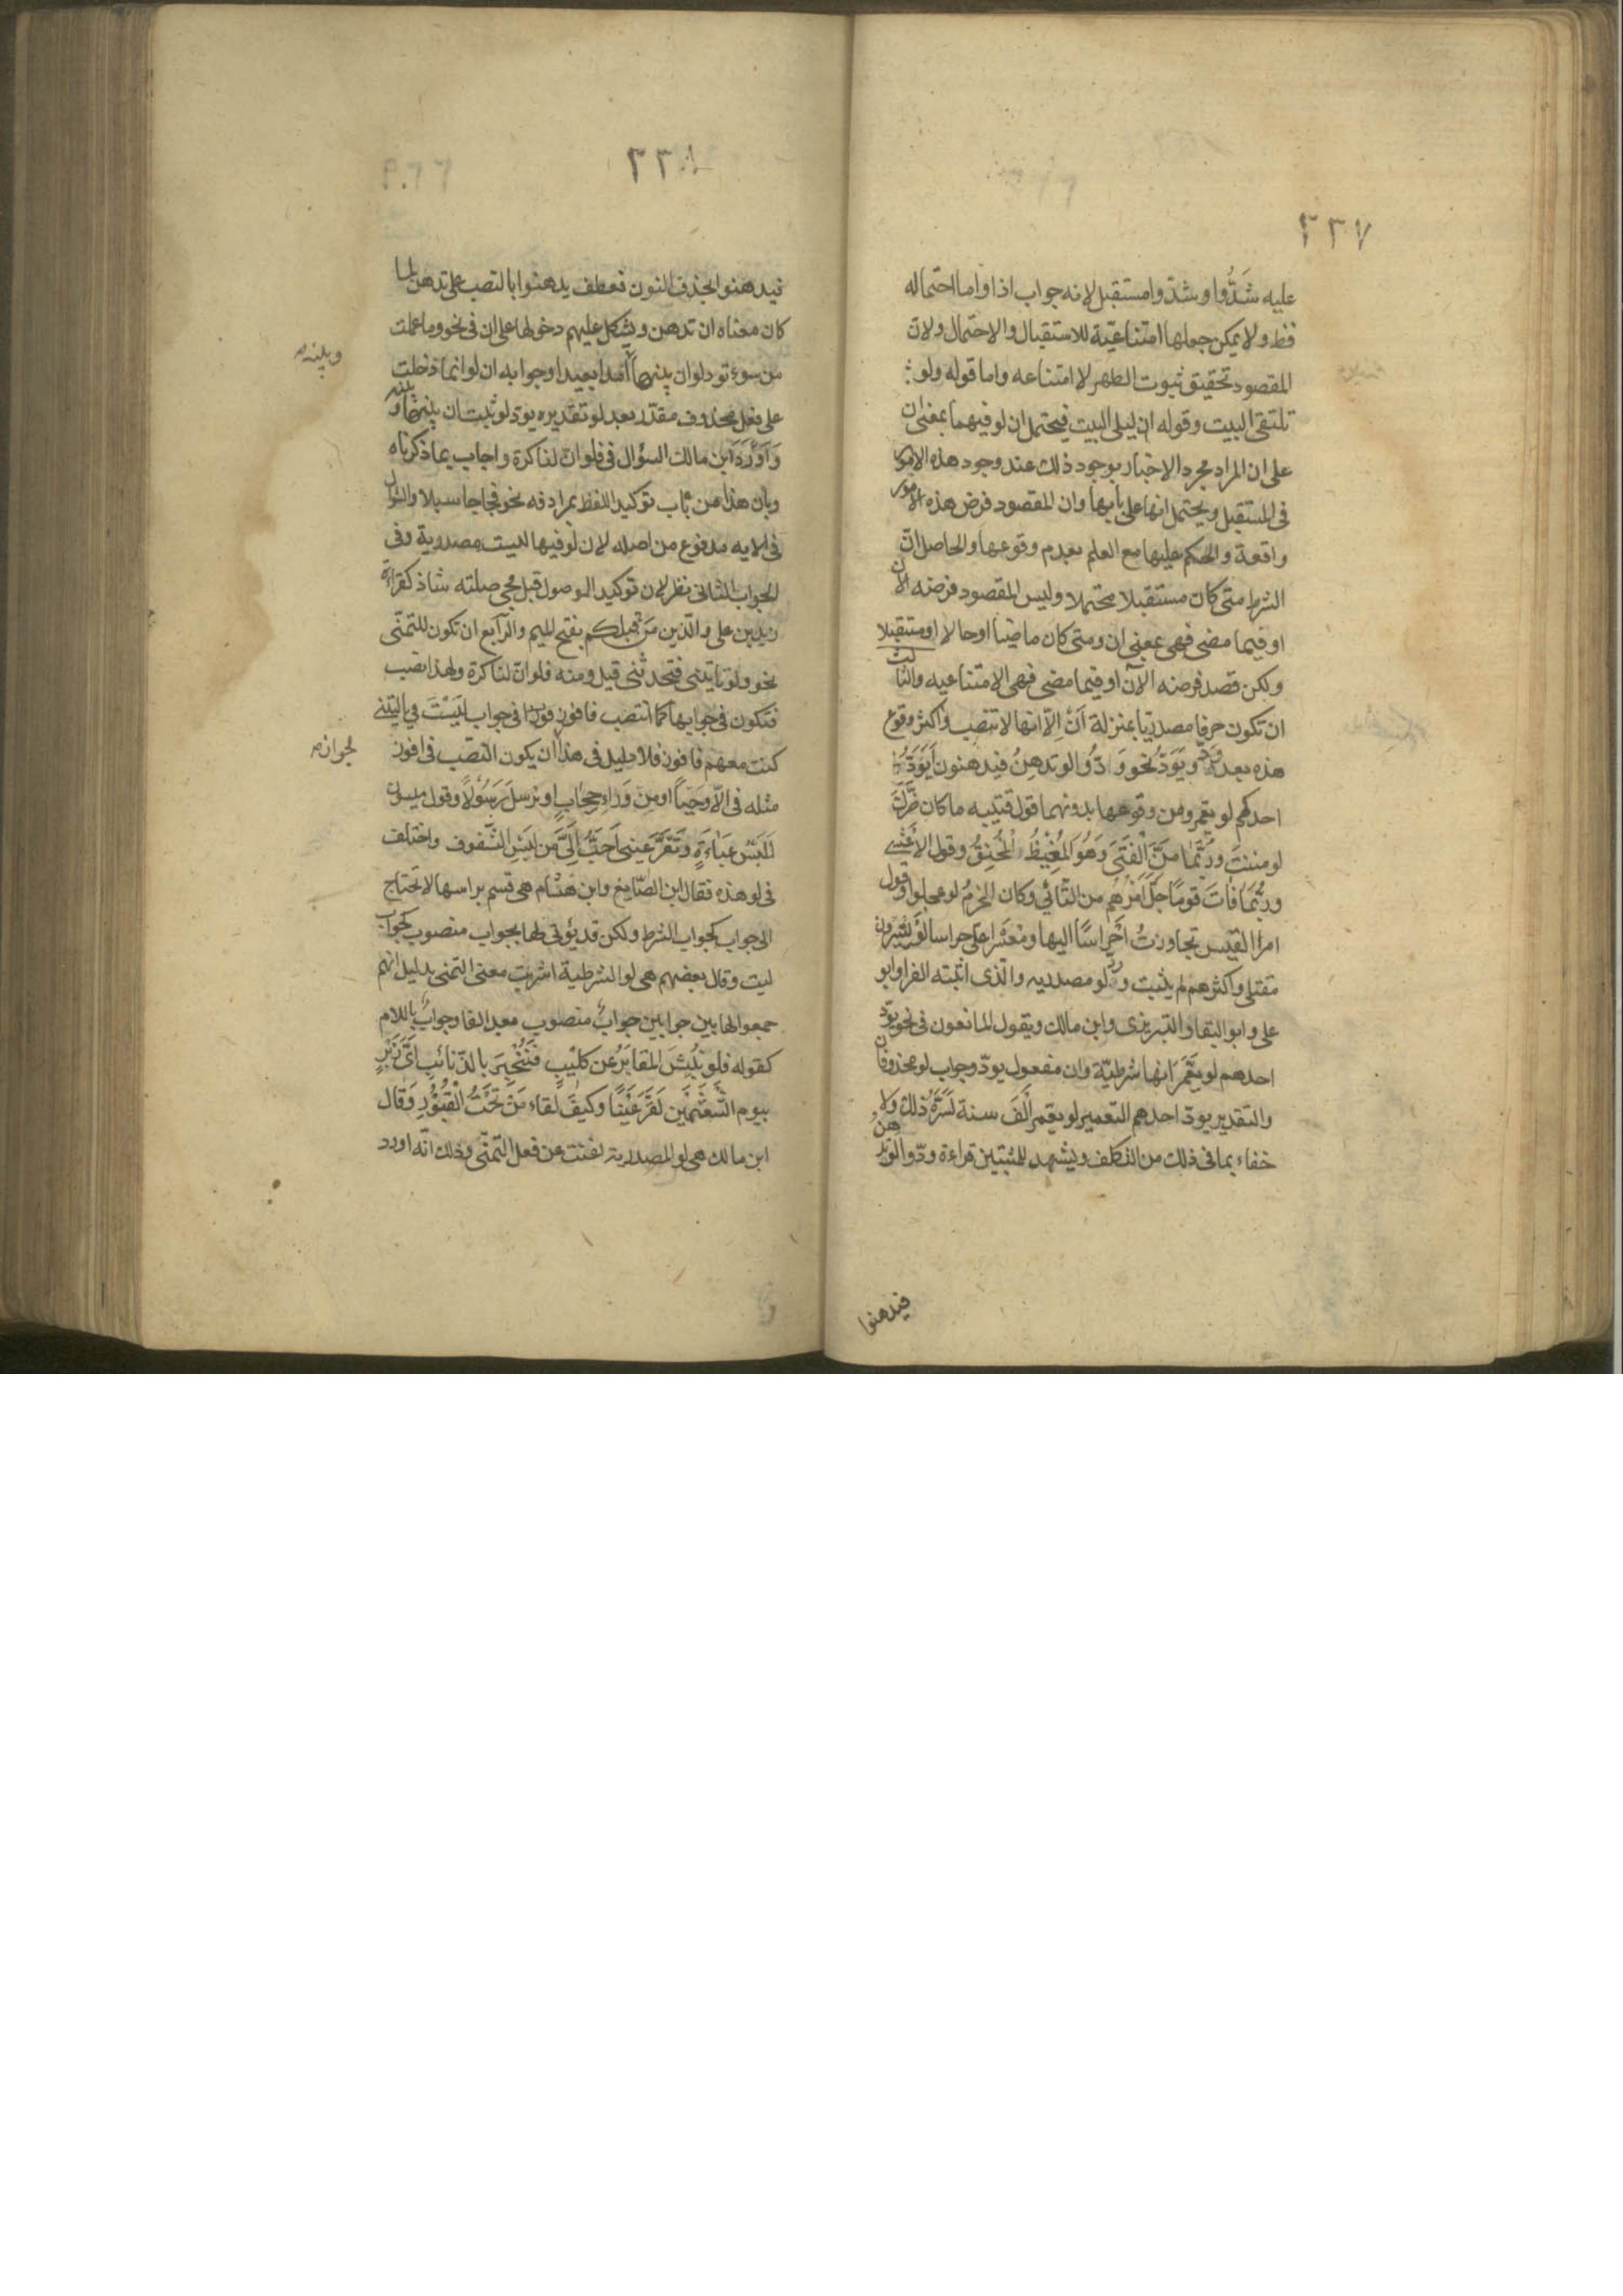 ٢٣٧
عليه شَدُّوا وشدّوا مستقبل لانه جواب اذا واما احتماله
فظ ولا يمكن جعلها امتناعيّة للاستقبال والاحتمال ولان
المقصود تحقيق ثبوت الطهر لا امتناعه واما قوله ولو
تلتقى البيت وقوله ان ليلى البيت فيحتمل ان لو فيهما بمعنى ان
على ان المراد مجرد الاخبار بوجود ذلك عند وجود هذه الامور
فى المستقبل ويحتمل انها على بابها وان المقصود فرض هذه الامور
واقعة والحكم عليها مع العلم بعدم وقوعها والحاصل انّ
الشرط متى كان مستقبلا محتملا وليس المقصود فرضه الآن
او فيما مضى فهى بمعنى ان ومتى كان ماضيا او حالا او مستقبلا
ولكن قصد فرضه الآن او فيما مضى فهى الامتناعيه والثالث
ان تكون حرفا مصدريّا بمنزلة اَنْ اِلّا انها لا تنصب واكثر وقوع
هذه بعد وَدَّ ويَوَدُّ نحو وَدُّوا لو تدهنُ فيدهنون اَيَوَدُّ
احدكم لو يعمر ومن وقوعها بدونهما قول قتيبه ما كان ضَرَّكَ
لو مننتَ ورُبَّمَا مَنَّ الْفَتَى وَهُوَ الْمَغِيظُ الْمُحْنِقُ وقول الاعشى
وربُّمَا فَاتَ قومًا جَلُّ اَمْرِهُم من التأنّي وكان الحزمُ لو عجلوا وقول
امرا القيس تجاوزتُ اَحْرَاسًا اليها ومَعْشَرا علىّ حراسا لَوْ يسرون
مقتلى واكثرهم لم يثبت ورود لو مصدريه والذى اثبته الفرا وابو
على وابو البقا والتبريزى وابن مالك ويقول المانعون فى نحو يودّ
احدهم لو يعَمَّر انها شرطيّة وان مفعول يودّ وجواب لو محذوفان
والتقدير يودّ احدهم التعمير لو يعمر اَلْفَ سنة لَسَرَّهُ ذلك ولا
خفاء بما فى ذلك من التكلف ويشهد للمثبتين قراءة ودّوا لو تدهنُ
فيدهنوا
٢٣٨
فيدهنوا بحذف النون فعطف يدهنوا بالنصب على تدهن لما
كان معناه ان تدهن ويشكل عليهم دخولها على ان فى نحو وما عملت
من سوء تود لو ان بينها وبينه امدا بعيدا وجوابه ان لو انما دخلت
على فعل محذوف مقدّر بعد لو تقديره يودّ لو ثبت ان بينها وبينه
وَاَوْرَدَ ابن مالك السؤال فى فلو انّ لنا كرة واجاب بما ذكرناه
وبان هذا من باب توكيد اللفظ بمرادفه نحو فجاجا سبلا والسؤال
فى الايه مدفوع من اصله لان لو فيها ليست مصدرية وفى
الجواب الثانى نظر لان توكيد الموصول قبل مجى صلته شاذ كقراءة
زيد بن على والّذين مَن قبلكم بفتح الميم والرّابع ان تكون للتمنّى
نحو ولو تأتينى فتحدثنى قيل ومنه فلو انّ لنا كرة ولهذا نصب
فنكون فى جوابها كما انتصب فافوز فوزا فى جواب لَيْتَ في يا ليتنى
كنت معهم فافوز فلا دليل فى هذا لجواز ان يكون النصّب فى افوز
مثله فى اِلّا وحيًا او مِنْ وَرَاءِ حِجَابٍ او يرسلَ رَسُوْلًا وقول ميسون
لَلُبْسُ عَبَاءَةٍ وَتَقَرَّ عينى اَحَبُّ اِلَىَّ مِن لُبْسِ الشفوف واختلف
فى لو هذه فقال ابن الصّايغ وابن هشام هى قسم براسها لا تحتاج
الى جواب كجواب الشرط ولكن قد يؤتى لها بجواب منصوب كجواب
ليت وقال بعضهم هى لو الشرطية اشربت معنى التمنى بدليل انهم
جمعوا لها بين جوابين جوابٌ منصوب بعد الفا وجوابٌ باللام
كقوله فلو نُبِشَ المقابَرُ عن كليْبٍ فَتُخْبِرَ بالذّنائبِ اىَّ زِيْرٍ
بيوم الشَّعْثَمَيْنِ لَقَرَّ عَيْنًا وَكَيفَ لقاء مَنْ تَحْتَ الْقُبُوْرِ وَقال
ابن مالك هى لو المصدرية اغنت عن فعل التمنّى وذلك انّه اورد
وبينه
لجواز